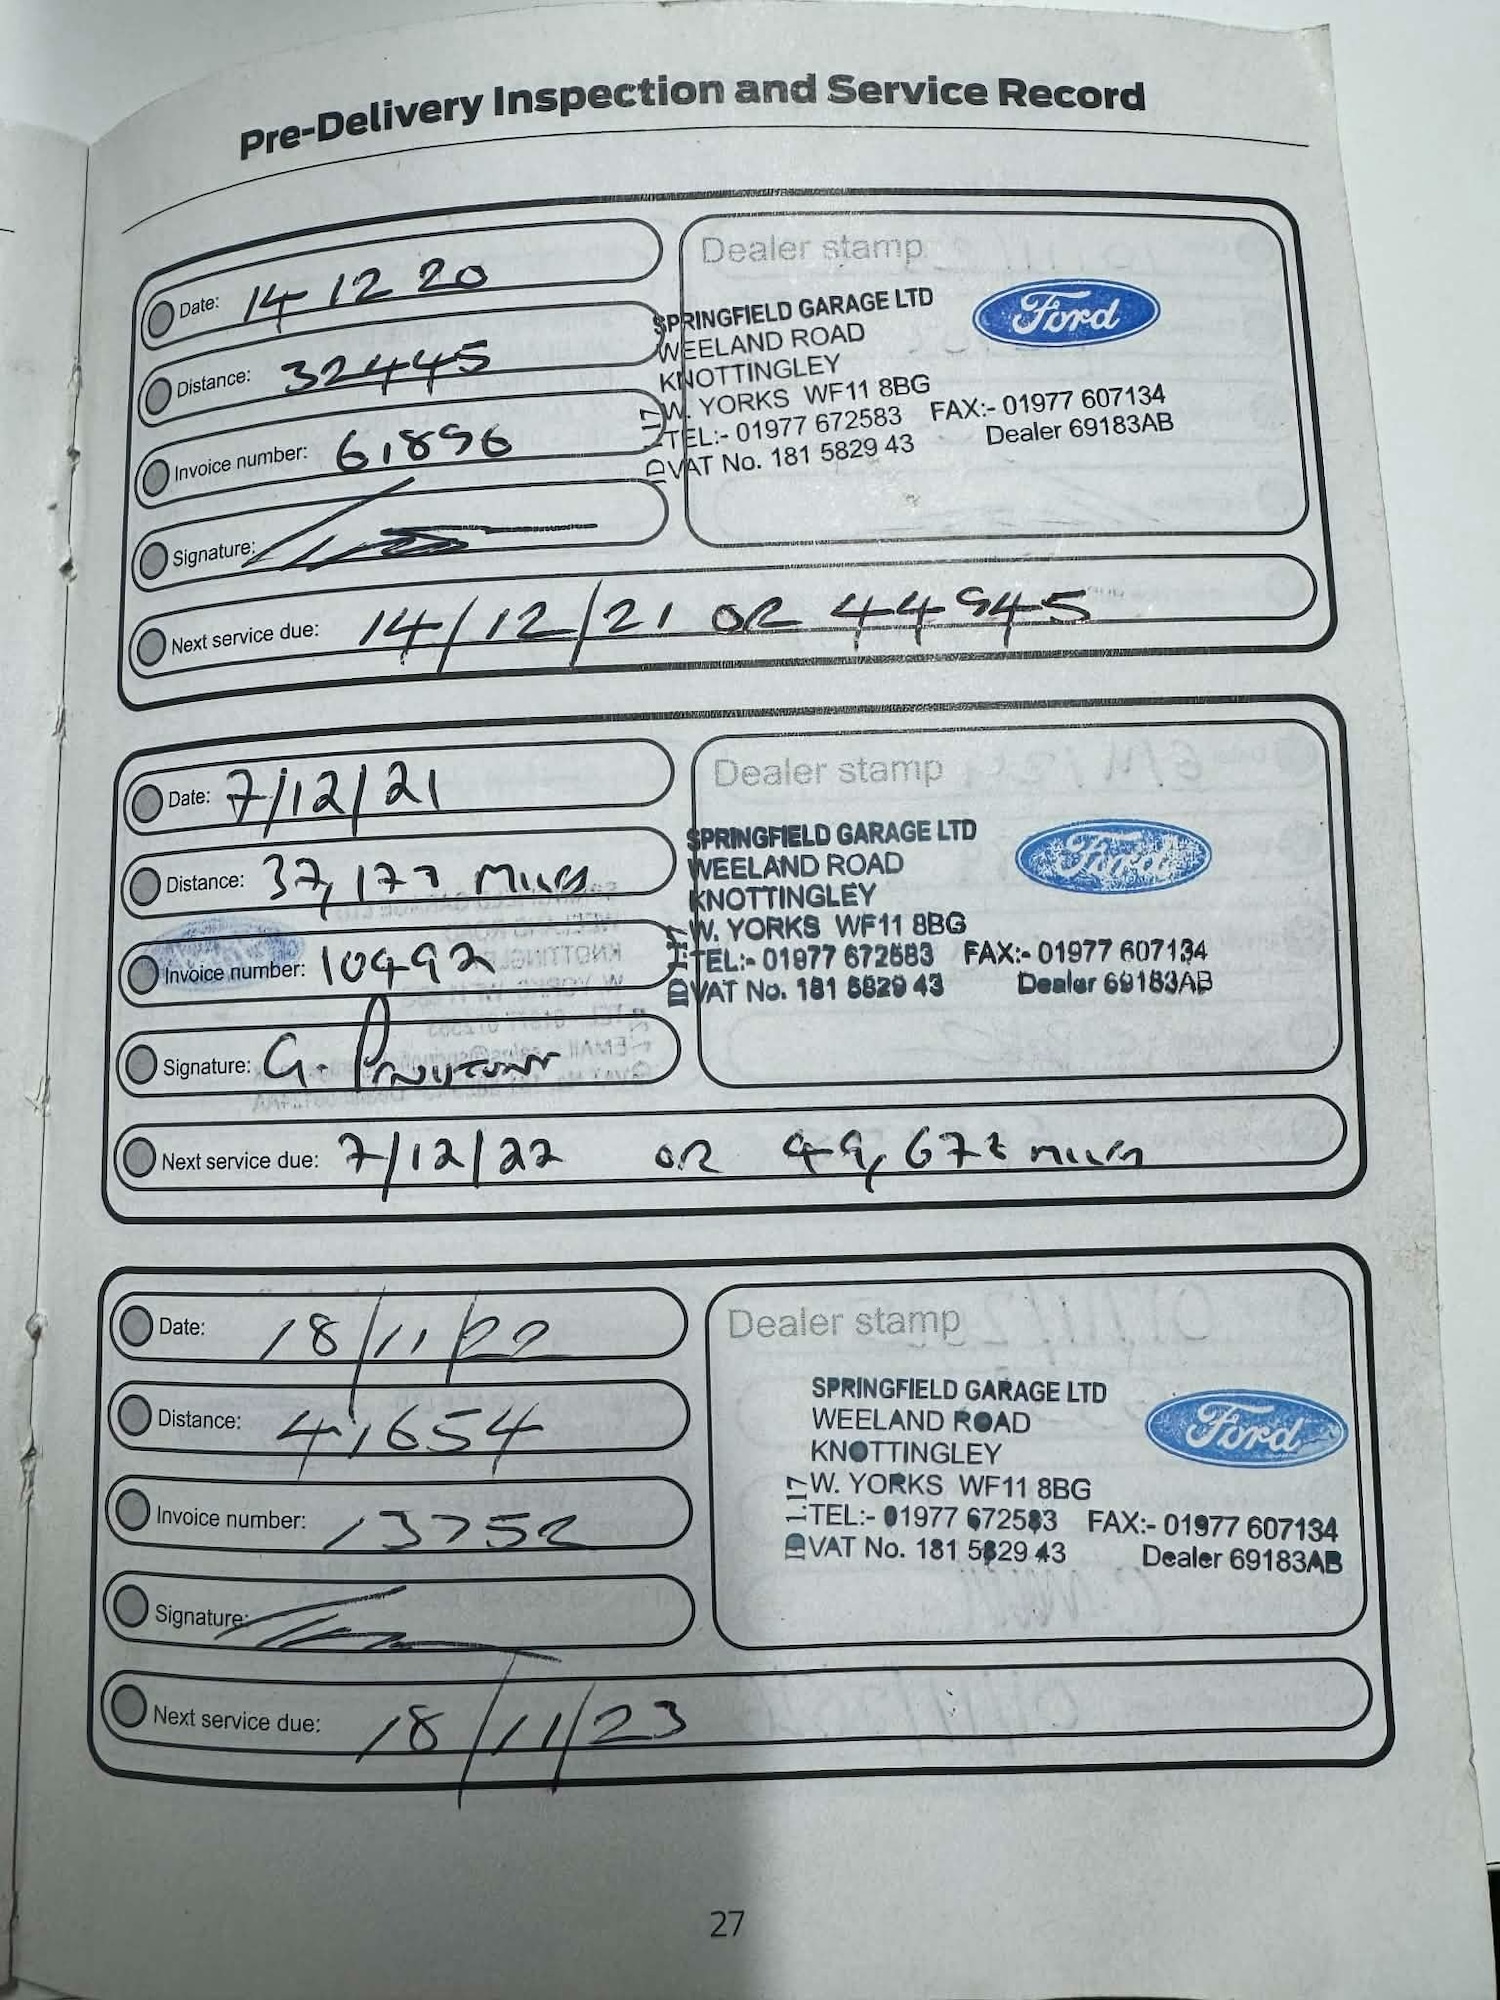 Pre-Delivery Inspection and Service Record
Date: 14 12 20
Distance: 32445
Invoice number: 61896
Signature:
Dealer stamp
SPRINGFIELD GARAGE LTD
WEELAND ROAD
KNOTTINGLEY
W. YORKS WF11 8BG
TEL:- 01977 672583 FAX:- 01977 607134
VAT No. 181 5829 43 Dealer 69183AB
Ford
Next service due: 14/12/21 OR 44945
Date: 7/12/21
Distance: 37,177 MILES
Invoice number: 10492
Signature: G.
Dealer stamp
SPRINGFIELD GARAGE LTD
WEELAND ROAD
KNOTTINGLEY
W. YORKS WF11 8BG
TEL:- 01977 672583 FAX:- 01977 607134
VAT No. 181 5829 43 Dealer 69183AB
Ford
Next service due: 7/12/22 OR 49,677 MILES
Date: 18/11/22
Distance: 41654
Invoice number: 13752
Signature:
Dealer stamp
SPRINGFIELD GARAGE LTD
WEELAND ROAD
KNOTTINGLEY
W. YORKS WF11 8BG
TEL:- 01977 672583 FAX:- 01977 607134
VAT No. 181 5829 43 Dealer 69183AB
Ford
Next service due: 18/11/23
27